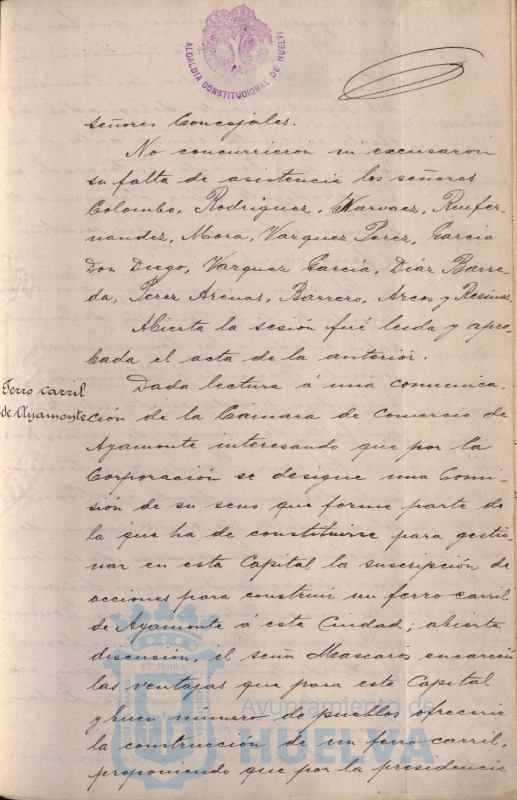 ALCALDIA CONSTITUCIONAL DE HUELVA
señores Concejales.
No concurrieron ni excusaron
su falta de asistencia los señores
Colombo, Rodriguez, Narvaez, Ruifer-
nandez, Mora, Vazquez Perez, Garcia
Don Diego, Vazquez Garcia, Diáz Barre
da, Perez Arenas, Barrero, Arcos y Resinas.
Abierta la sesión fué leida y apro-
bada el acta de la anteriór.
Ferro carril
de Ayamonte
Dada lectura á una comunica-
ción de la Cámara de Comercio de
Ayamonte interesando que por la
Corporación se designe una Comi-
sión de su seno que forme parte de
la que ha de constituirse para gestio-
nar en esta Capital la suscripción de
acciones para construir un ferro carril
de Ayamonte á esta Ciudad; abierta
discusión, el señor Mascarós encareció
las ventajas que para esta Capital
y buen número de pueblos ofreceria
la construcción de un ferro carril,
proponiendo que por la presidencia
Ayuntamiento de
HUELVA